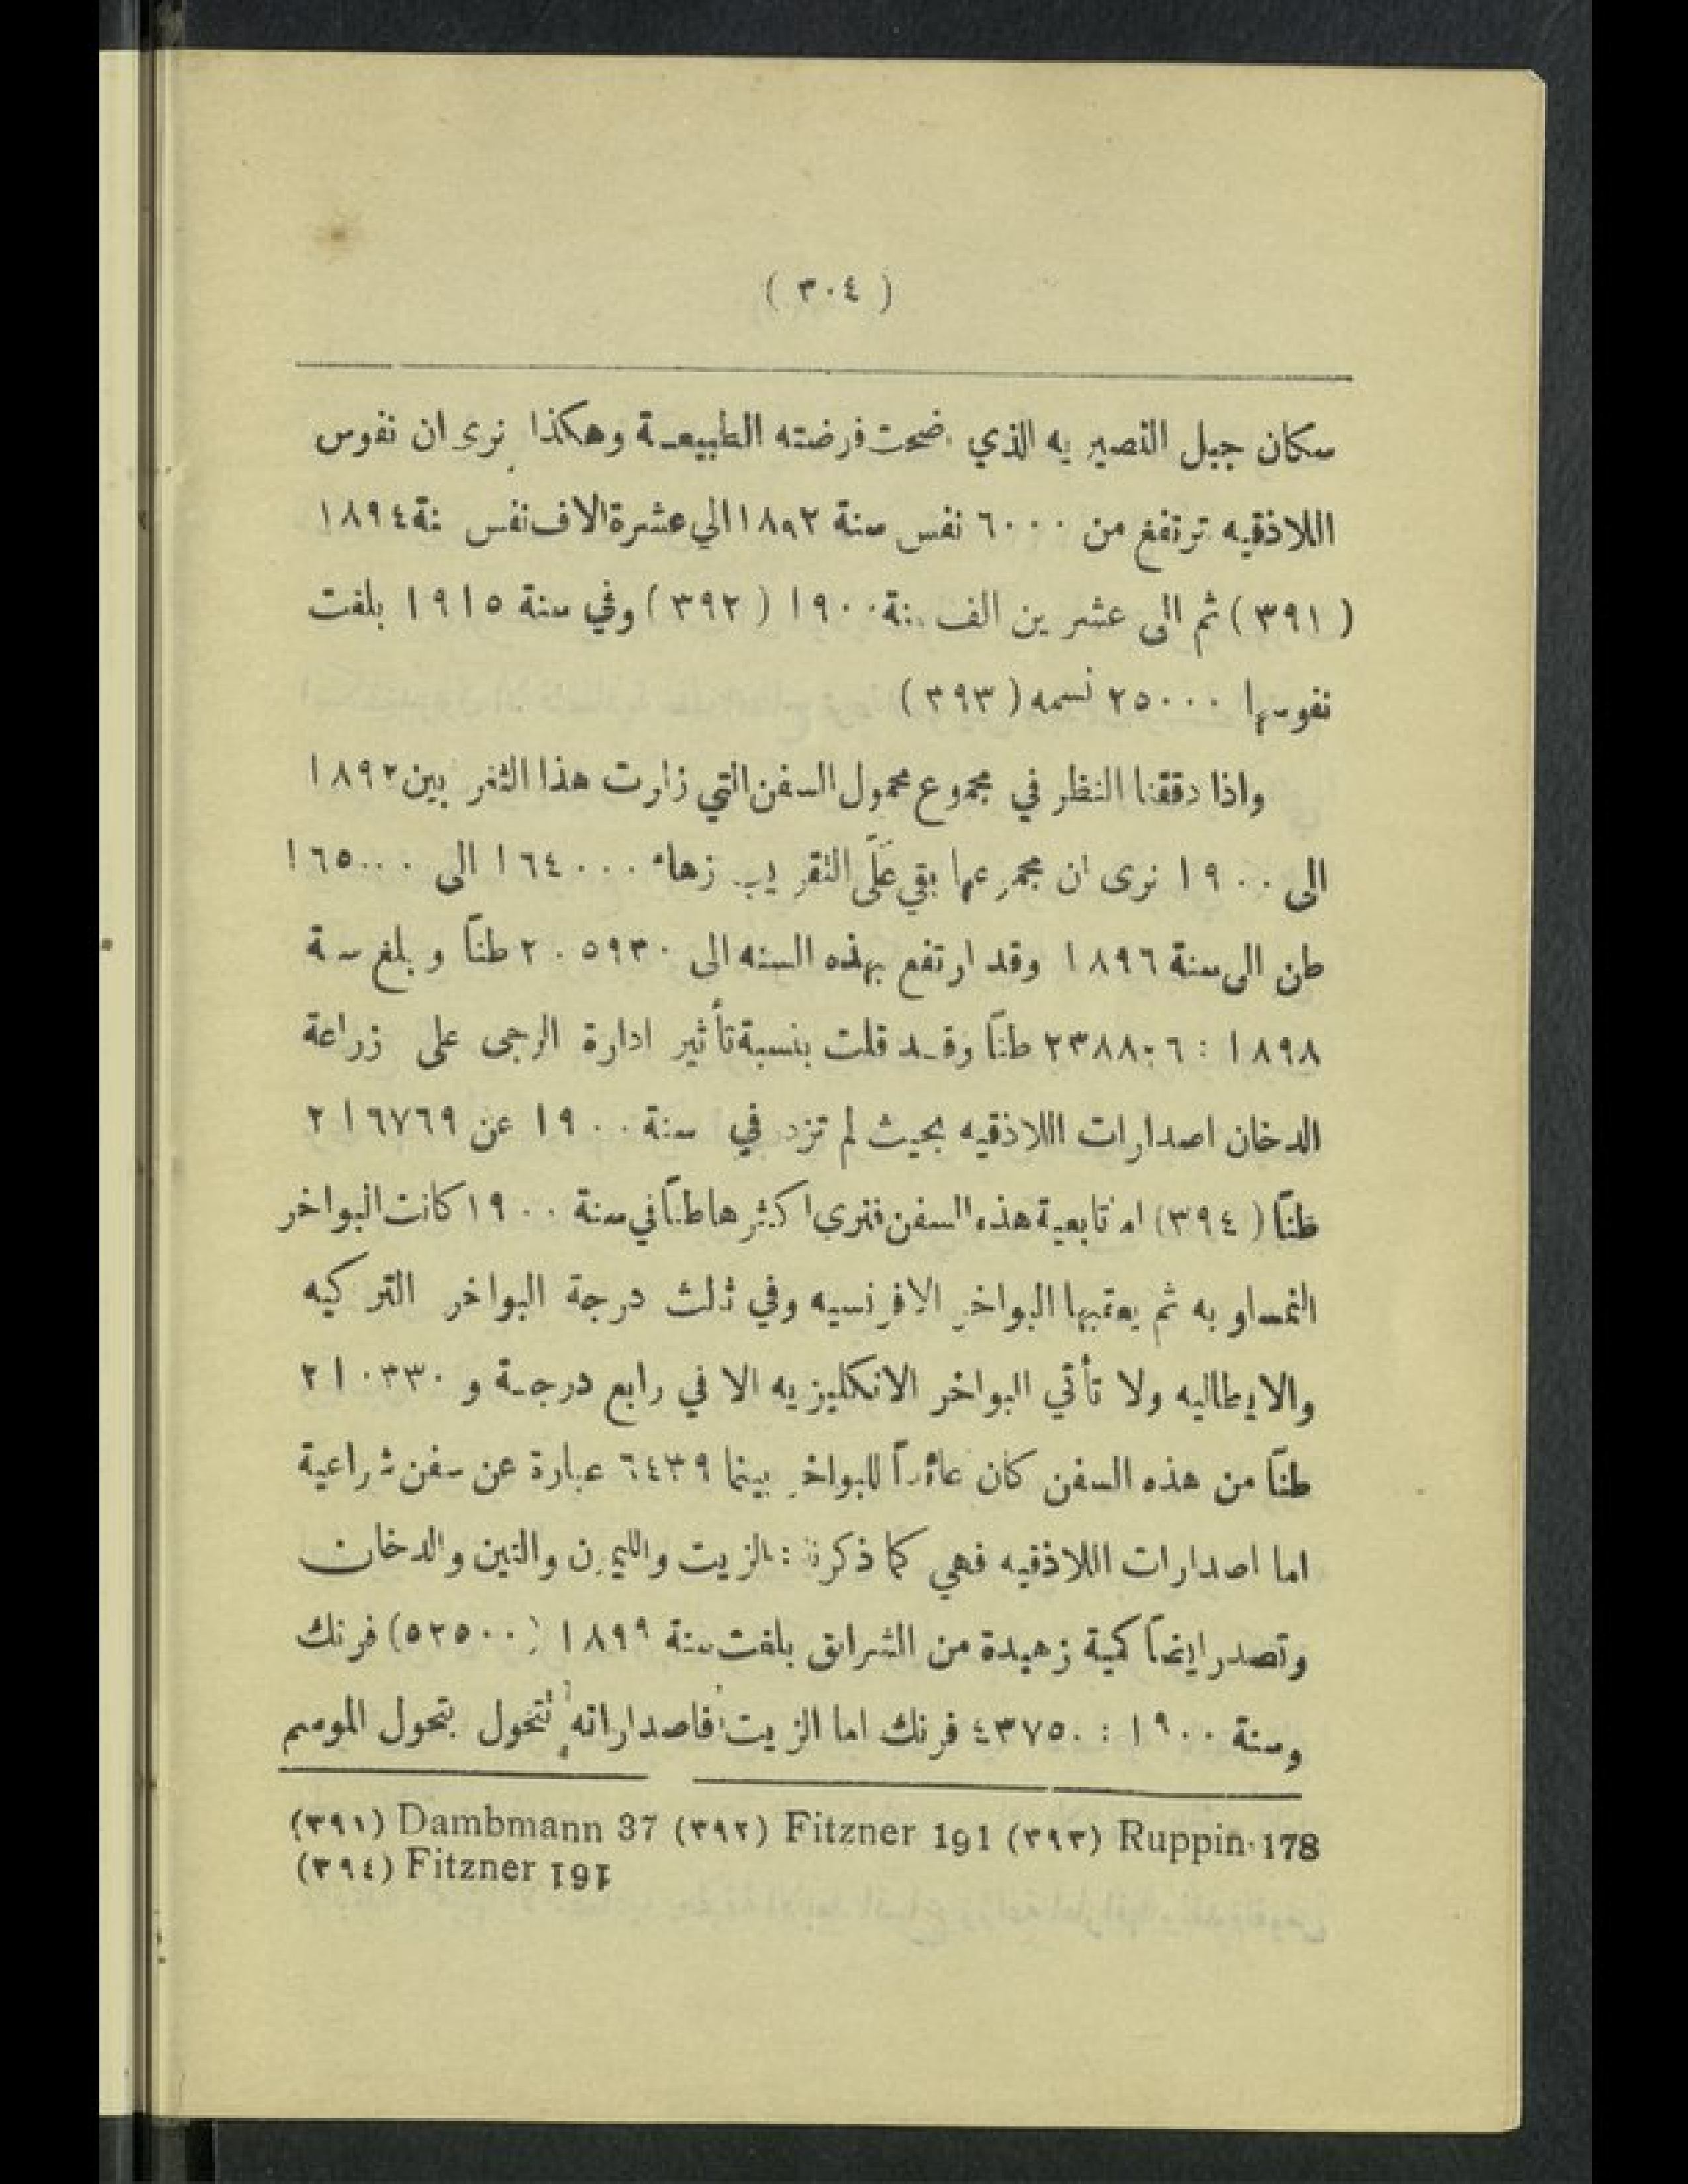 ( ٣٠٤ )
سكان جبل النصيريه الذي اضحت فرضته الطبيعية وهكذا نرى ان نفوس
اللاذقيه ترتفع من ٦٠٠٠ نفس سنة ١٨٩٢ الي عشرة الاف نفس سنة ١٨٩٤
(٣٩١) ثم الى عشرين الف سنة ١٩٠٠ (٣٩٢) وفي سنة ١٩١٥ بلغت
نفوسها ٢٥٠٠٠ نسمه (٣٩٣)
واذا دققنا النظر في مجموع محمول السفن التي زارت هذا الثغر بين ١٨٩٢
الى ١٩٠٠ نرى ان مجموعها بقي عَلَى التقريب زهاء ١٦٤٠٠٠ الى ١٦٥٠٠٠
طن الى سنة ١٨٩٦ وقد ارتفع بهذه السنه الى ٢٠٥٩٣٠ طناً وبلغ سنة
١٨٩٨ : طناً وقد قلت بنسبة تأثير ادارة الرجى على زراعة
الدخان اصدارات اللاذقيه بحيث لم تزد في سنة ١٩٠٠ عن ٢١٦٧٦٩
طناً (٣٩٤) اما تابعية هذه السفن فنرى اكثرها طناً في سنة ١٩٠٠ كانت البواخر
النمساويه ثم يعقبها البواخر الافرنسيه وفي ثلث درجة البواخر التركيه
والايطاليه ولا تأتي البواخر الانكليزيه الا في رابع درجة و ٢١٠٣٣٠
طناً من هذه السفن كان عائداً للبواخر بينما ٦٤٣٩ عبارة عن سفن شراعية
اما اصدارات اللاذقيه فهي كما ذكرنا : الزيت والليمون والتين والدخان
وتصدر ايضاً كمية زهيدة من الشرانق بلغت سنة ١٨٩٩ (٥٢٥٠٠) فرنك
وسنة ١٩٠٠ : ٤٣٧٥٠ فرنك اما الزيت فاصداراته تتحول بتحول الموسم
(٣٩١) Dambmann 37 (٣٩٢) Fitzner 191 (٣٩٣) Ruppin 178
(٣٩٤) Fitzner 191